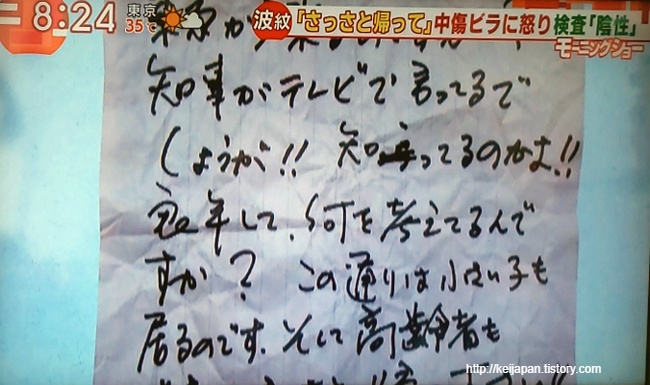 8:24 東京 35℃ 波紋 「さっさと帰って」中傷ビラに怒り 検査「陰性」
モーニングショー
知事がテレビで言ってるで
しょうが!! 知ってるのかよ!!
年して、何を考えてるんで
すか? この通りは小さい子も
居るのです、そして高齢者も
http://keijapan.tistory.com